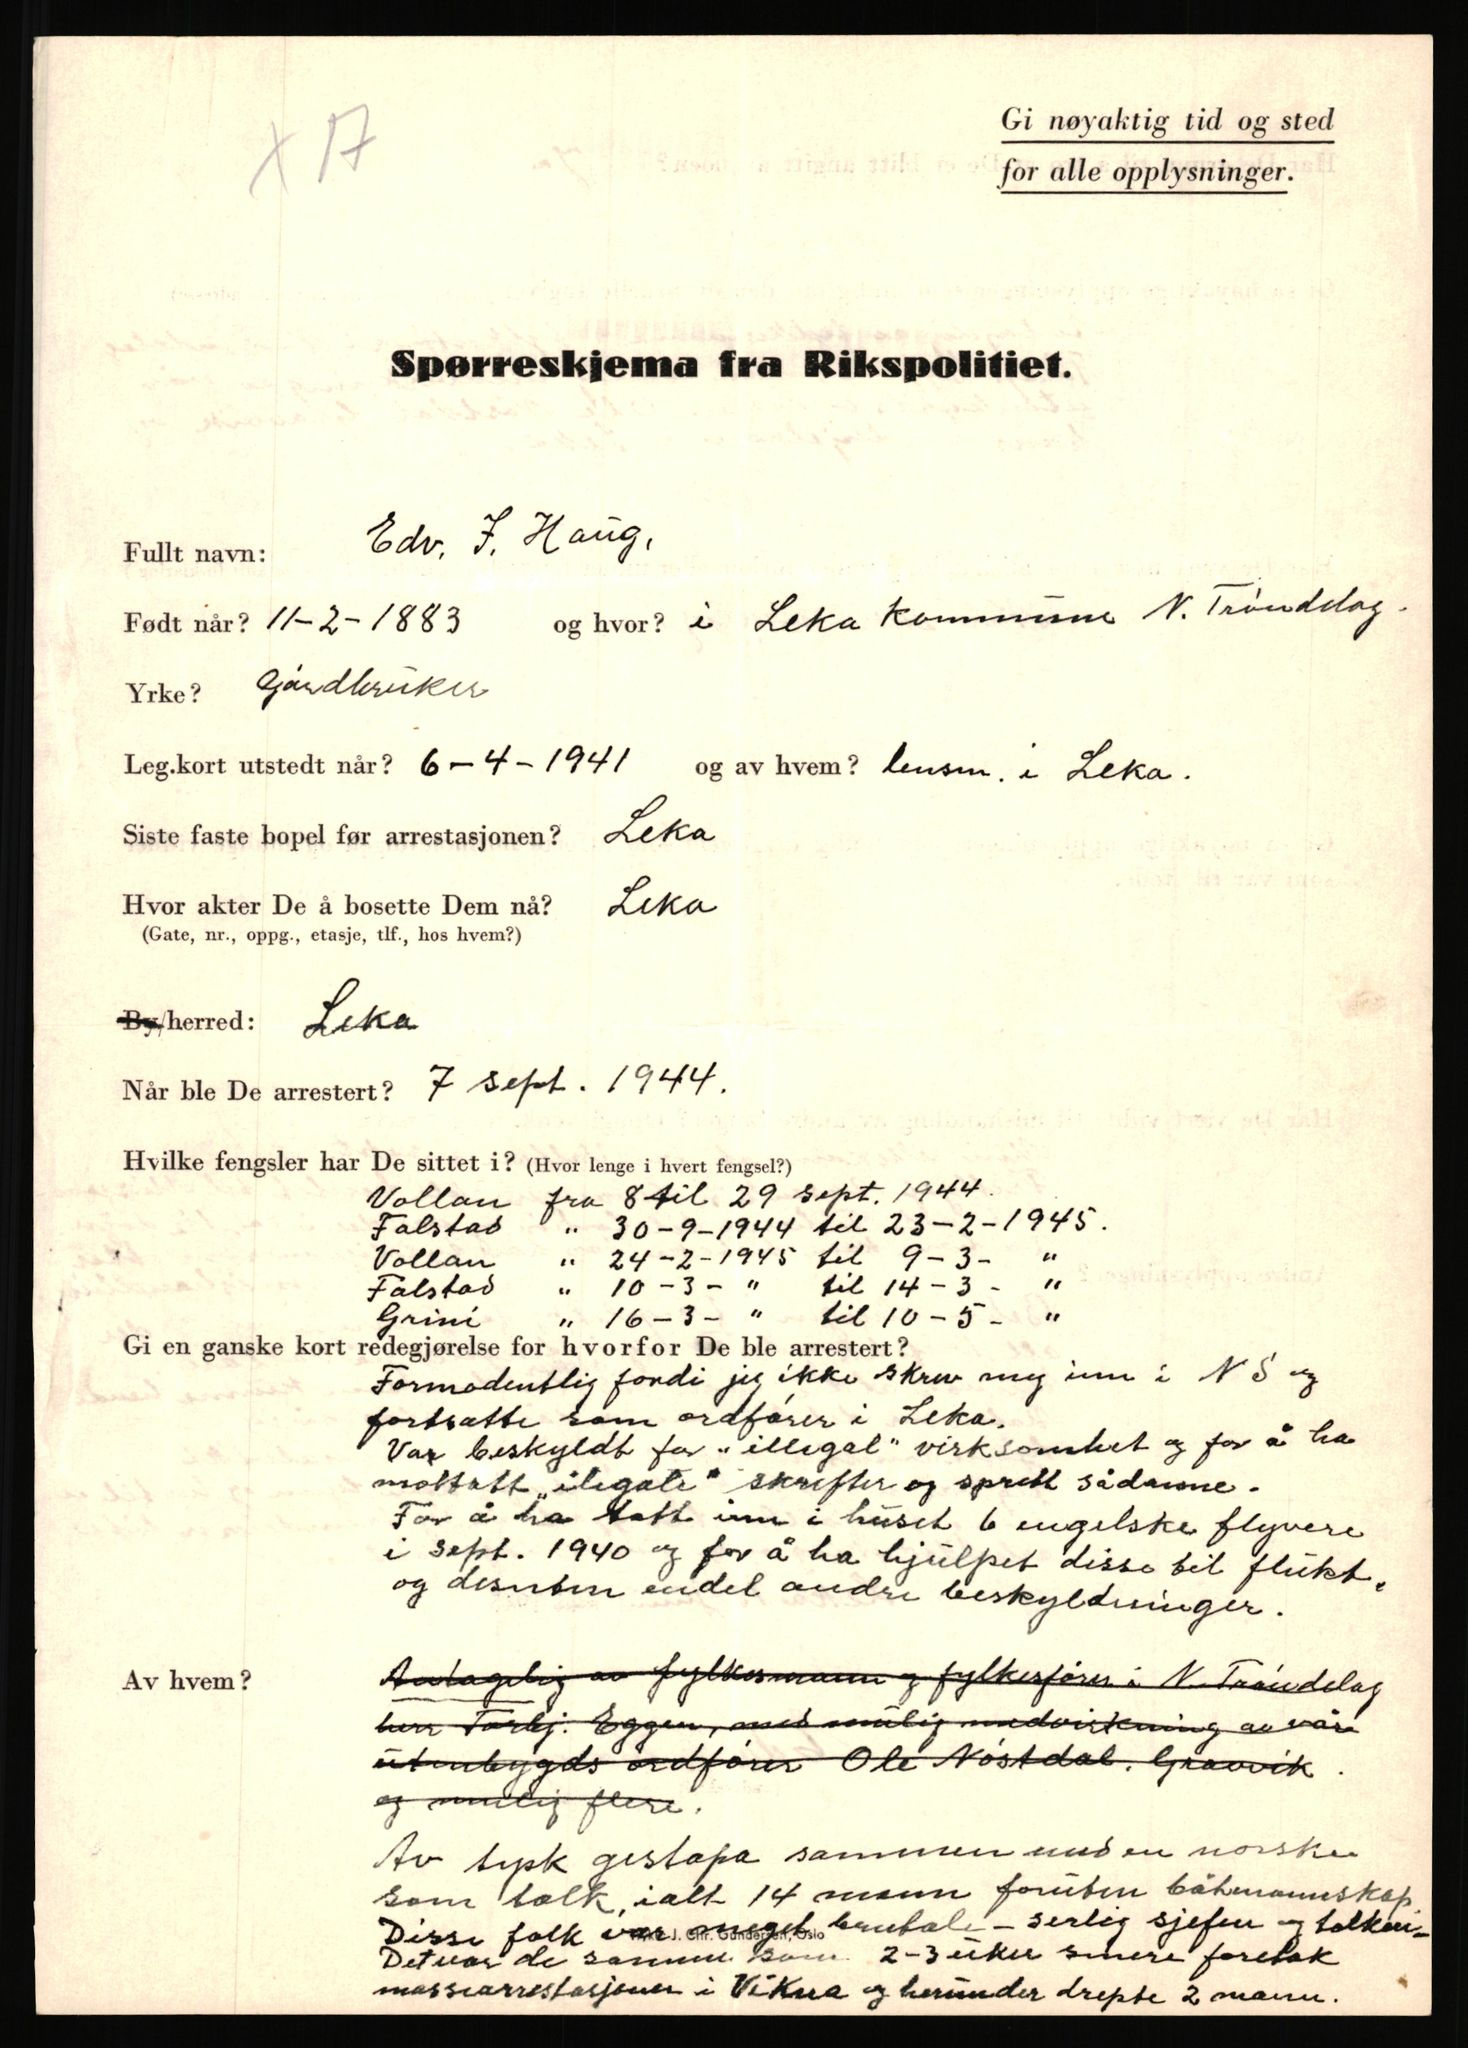 x 17
Gi nøyaktig tid og sted
for alle opplysninger.
Spørreskjema fra Rikspolitiet.
Fullt navn: Edv. F. Haug.
Født når? 11-2-1883 og hvor? i Leka kommune N. Trøndelag.
Yrke? Gårdbruker
Leg.kort utstedt når? 6-4-1941 og av hvem? lensm. i Leka.
Siste faste bopel før arrestasjonen? Leka
Hvor akter De å bosette Dem nå? Leka
(Gate, nr., oppg., etasje, tlf., hos hvem?)
By/herred: Leka
Når ble De arrestert? 7 sept. 1944.
Hvilke fengsler har De sittet i? (Hvor lenge i hvert fengsel?)
Vollan fra 8 til 29 sept. 1944.
Falstad " 30-9-1944 til 23-2-1945.
Vollan " 24-2-1945 til 9-3- "
Falstad " 10-3- " til 14-3- "
Grini " 16-3- " til 10-5- "
Gi en ganske kort redegjørelse for hvorfor De ble arrestert?
Formodentlig fordi jeg ikke skrev meg inn i NS og
fortsatte som ordfører i Leka.
Var beskyldt for "illegal" virksomhet og for å ha
mottatt "ilegale" skrifter og spredt sådanne.
For å ha tatt inn i huset 6 engelske flyvere
i sept. 1940 og for å ha hjulpet disse til flukt.
og desuten endel andre beskyldninger.
Av hvem? Antagelig av fylkesmann og fylkesfører i N. Trøndelag
herr Torbj. Eggen, med mulig medvirkning av våre
utenbygds ordfører Ole Nøstdal. Gravvik.
og mulig flere.
Av tysk gestapo sammen med en norske
som tolk, ialt 14 mann foruten båtmannskap
Disse folk var meget brutale - serlig sjefen og tolken -
J. Chr. Gundersen, Oslo
Det var de samme som 2-3 uker senere foretok
massearrestasjoner i Vikna og herunder drepte 2 mann.